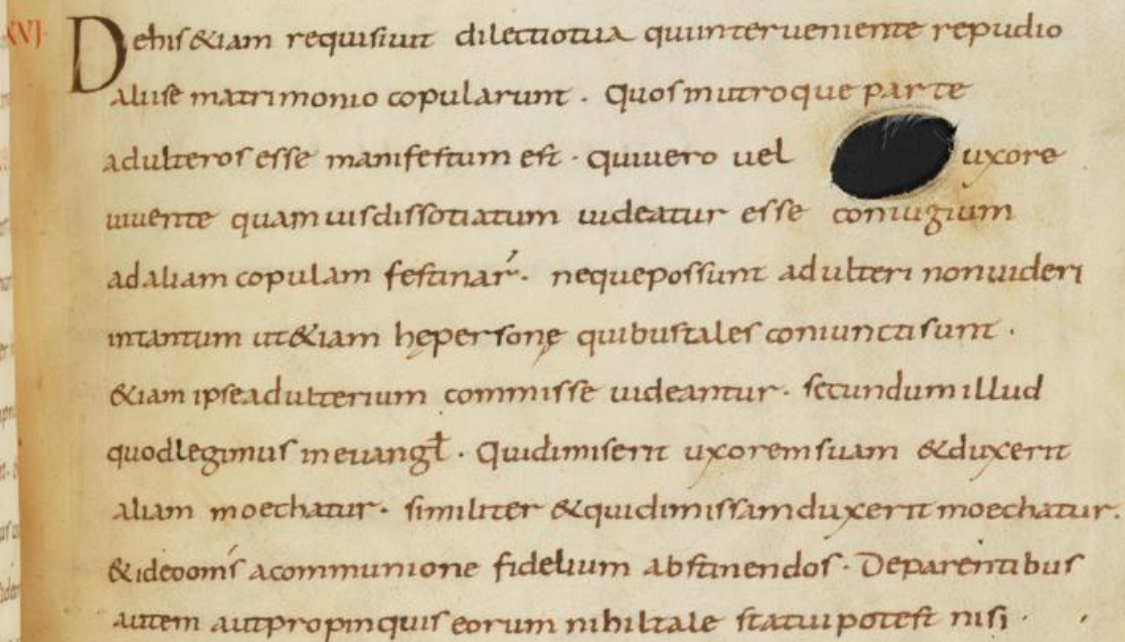 XVI. De his &iam requisiuit dilectio tua qui interueniente repudio
alii se matrimonio copularunt. Quos in utroque parte
adulteros esse manifestum est. qui uero uel uxore
uiuente quamuis dissotiatum uideatur esse coniugium
ad aliam copulam festinar̄. neque possunt adulteri non uideri
intantum ut &iam hę personę quibus tales coniuncti sunt.
&iam ipse adulterium commisse uideantur. secundum illud
quod legimus in euangł. Qui dimiserit uxorem suam & duxerit
aliam moechatur. similiter & qui dimissam duxerit moechatur.
& ideo om̄s a communione fidelium abstinendos. De parentibus
autem aut propinquis eorum nihil tale statui potest nisi.